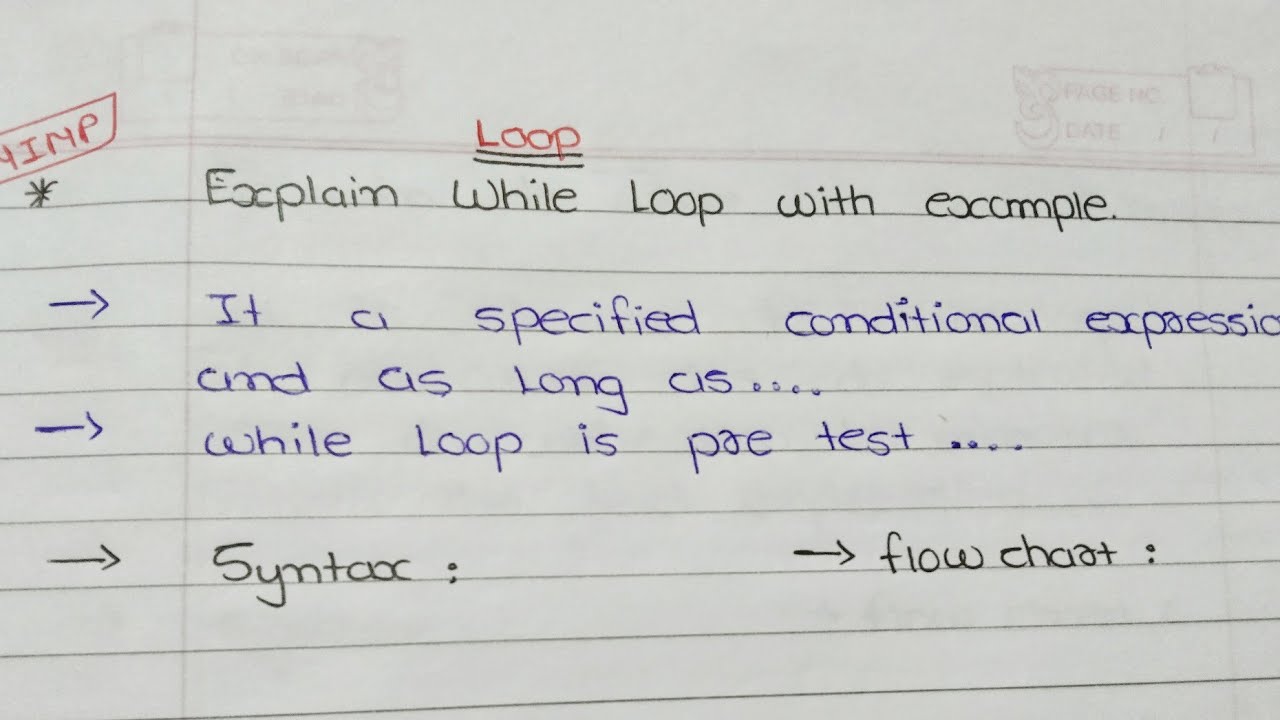 Loop
IMP
* Explain While Loop with example.
→ It a specified conditional expressio
and as long as....
→ while loop is pre test ....
→ Syntax : → flow chart :
PAGE NO.
DATE / /